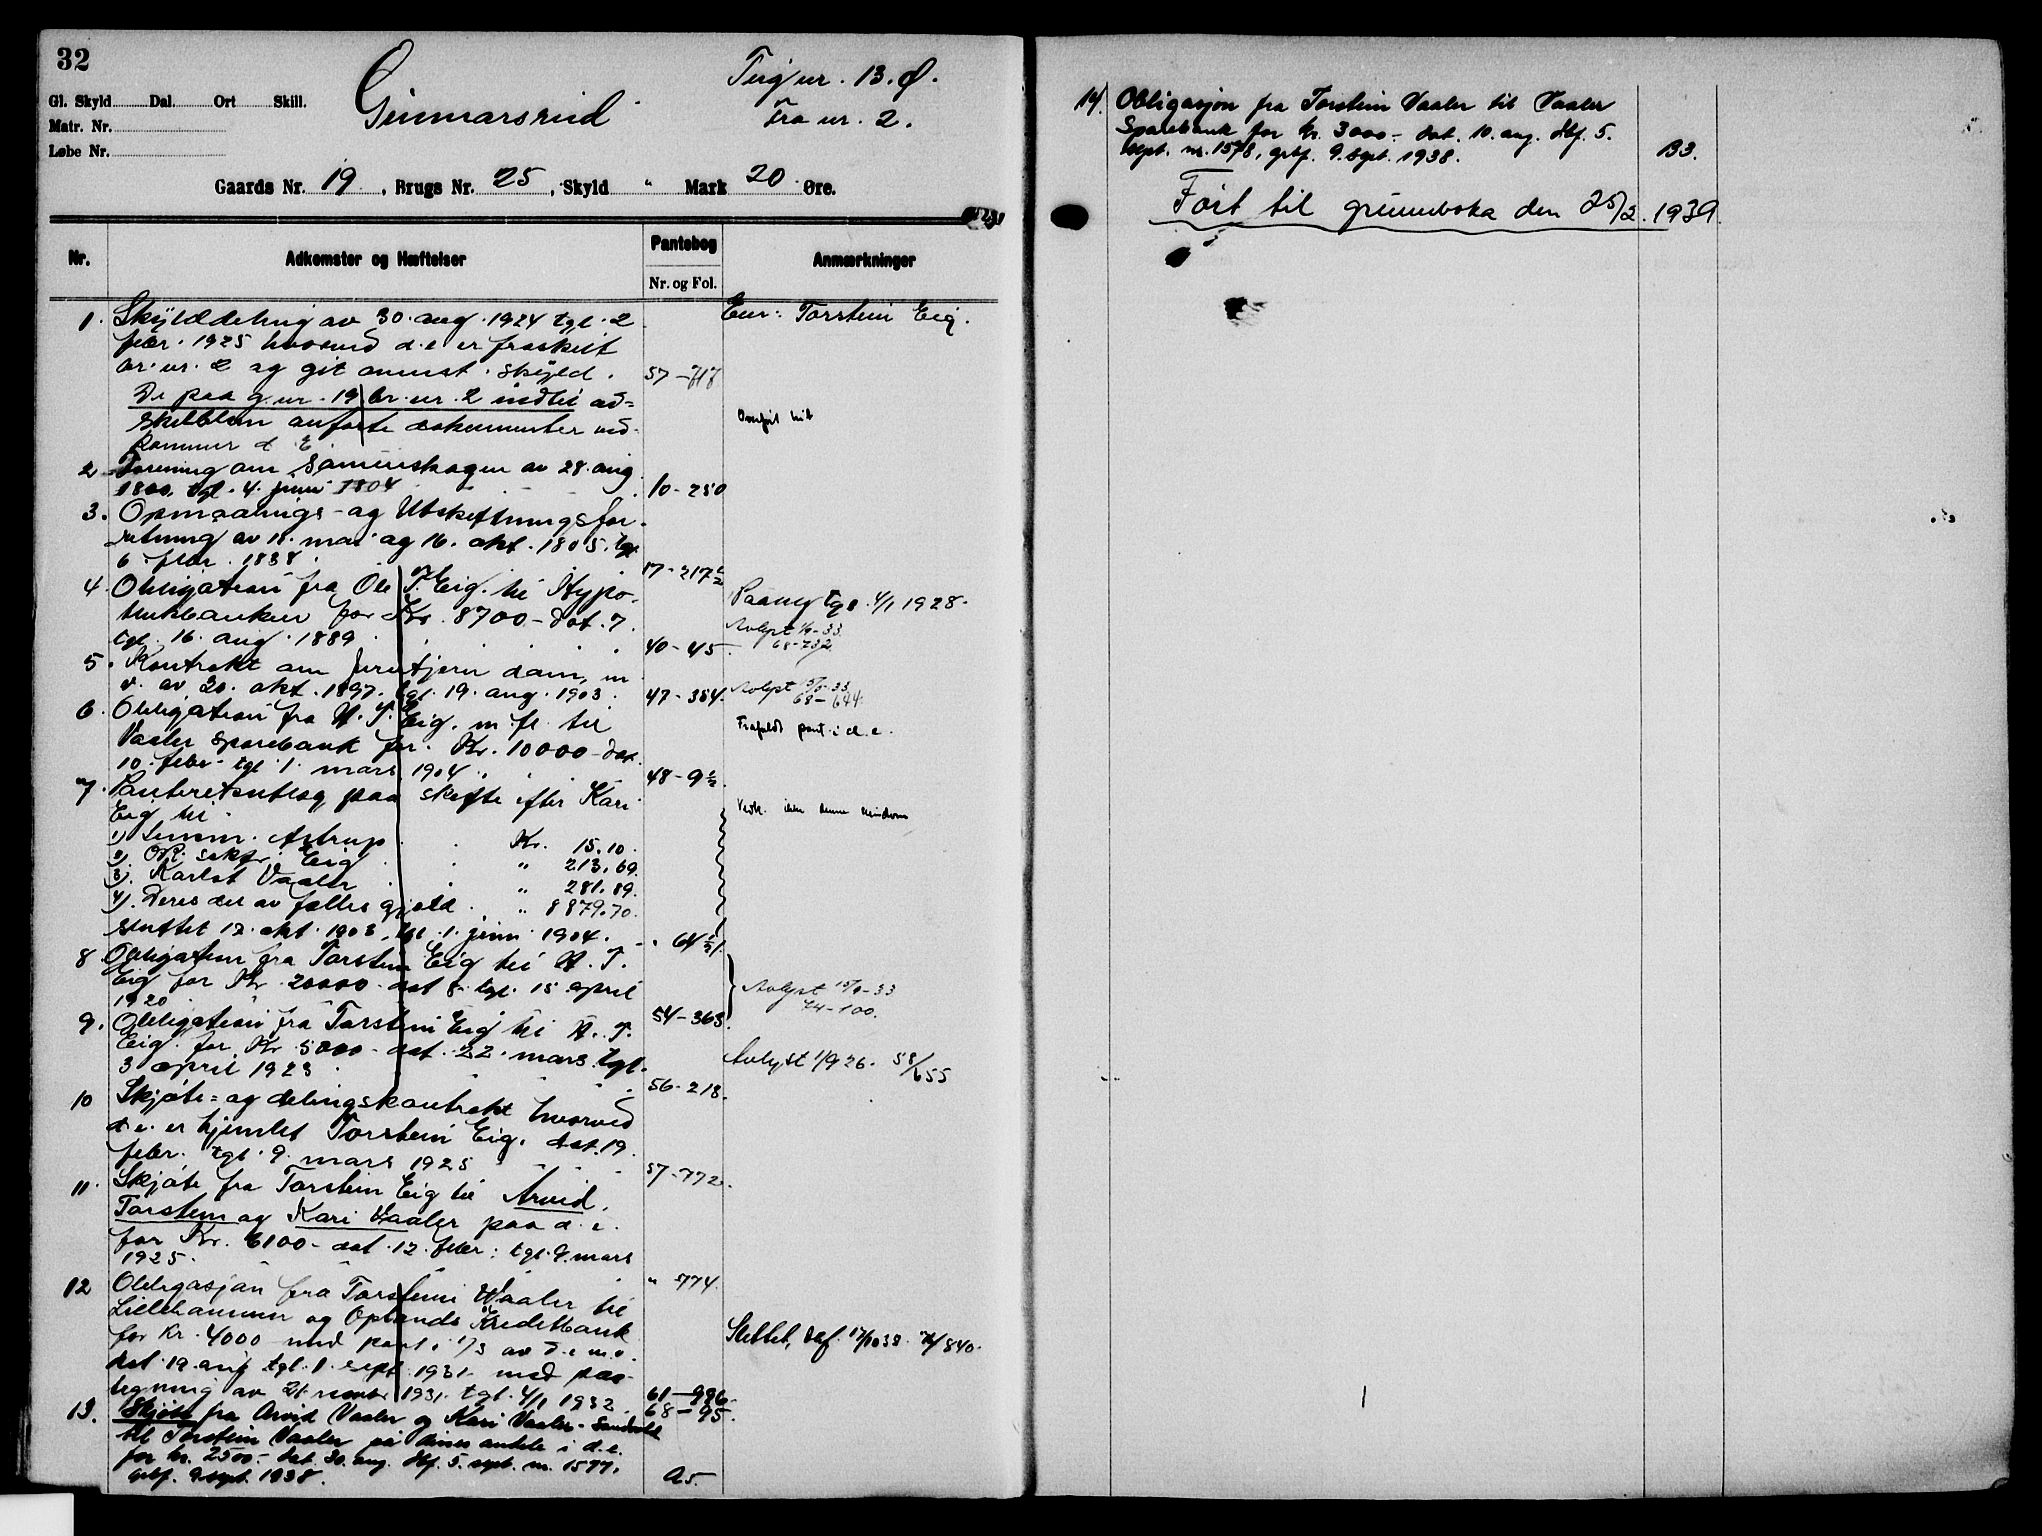 32
Gl. Skyld Dal. Ort Skill.
Matr. Nr.
Løbe Nr.
Gunnarsrud
Tingnr. 13. Ø.
Fra nr. 2.
Gaards Nr. 19, Brugs Nr. 25, Skyld " Mark 20 Øre.
Nr. Adkomster og Hæftelser Pantebog Nr. og Fol. Anmærkninger
1. Skylddeling av 30. aug. 1924 tgl. 2 Eier: Torstein Eig.
febr. 1925 hvorved d.e er fraskilt
br. nr. 2 og git anmst. skyld. 57 - 717
De paa g.nr. 19 br. nr. 2 indtil ad=
skillelsen anførte dokumenter ved-
kommer d. E.
2 Forening om Sameieskogen av 28. aug
1800, tgl. 4. juni 1804 10 - 250
3. Opmaalings- og Utskiftningsfor-
retning av 11. mai og 16. okt. 1805. tgl
6 febr. 1838. 17 - 217
4. Obligation fra Ole T. Eig. til Hypo-
thekbanken for Kr. 8700 - dat. 7. Paany tgl. 4/1 1928.
tgl. 16. aug. 1889 40 - 45 Avlyst
5. Kontrakt om dam, m
v. av 30. okt. 1897. tgl. 19. aug. 1903. 47 - 384. Avlyst
6. Obligation fra H. T. Eig. m. fl. til
Vaaler sparebank for Kr. 10000 - dat. Frafaldt pant i d.e.
10. febr. tgl. 1. mars 1904 48 - 9
7. Panteretsutlæg paa skifte efter Kari
Eig til Vedk. ikke denne eiendom
1) Astrup Kr. 15.10.
2) Eig " 213.69.
3) Vaaler " 281.89.
4). Deres del av fælles gjeld " 8879.70.
sluttet 12. okt. 1903, tgl. 1. juni 1904. " 64
8. Obligation fra Torstein Eig til H. T.
Eig for Kr. 20000 - dat 8. tgl. 15 april Avlyst
1920 54 - 363. 74 - 100.
9. Obligation fra Torstein Eig til H. T.
Eig. for Kr. 5000 - dat. 22. mars tgl. Avlyst 1/9 26. 58/655
3 april 1923. 56 - 218.
10 Skjøte= og delingskontrakt hvorved
d.e. er hjemlet Torstein Eig. dat. 19.
febr. tgl. 9. mars 1925 57 - 772.
11. Skjøte fra Torstein Eig til Arvid,
Torstein og Kari Vaaler paa d. e.
for Kr. 6100 - dat. 12. febr. tgl. 9. mars
1925. " 774.
12 Obligasjon fra Torstein Vaaler til
Lillehammer og Oplands Kreditbank
for Kr. 4000 med pant i 1/3 av d.e m.v. Slettet,
dat. 19 aug tgl. 1. sept. 1931. med paa-
tegning av 21. 1931. tgl. 4/1 1932. 61 - 996.
68 - 95.
13. Skjøte fra Arvid Vaaler og Kari Vaaler-
til Torstein Vaaler på deres andele i d.e.
for kr. 2500.- dat. 30. aug. dbf. 5. sept. nr. 1577,
grbf. 9. sept. 1938. A5.
14. Obligasjon fra Torstein Vaaler til Vaaler
Sparebank for kr. 3000.- dat. 10. aug. dbf. 5.
sept. nr. 1578, grbf. 9. sept. 1938. B3.
Ført til grunnboka den 25/2. 1939.